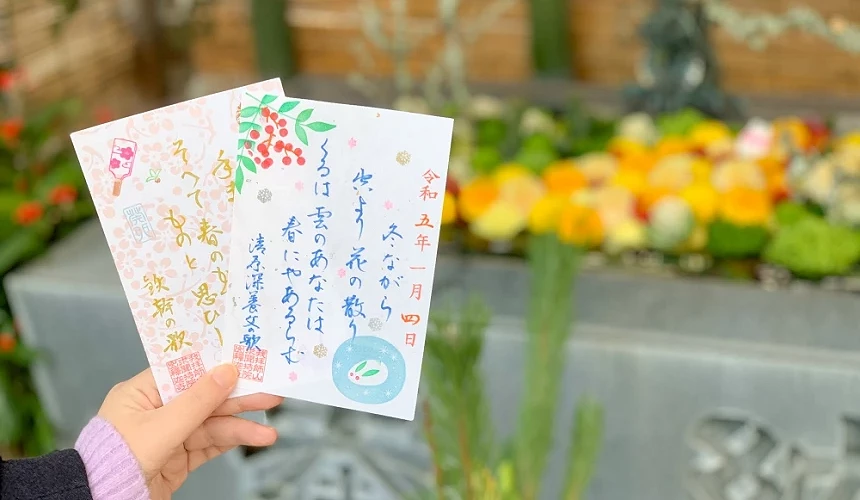 令和五年一月四日
冬ながら
空より花の散り
くるは雲のあなたは
春にやあるらむ
清原深養父の歌
そへて春の思ひし
ものと
の歌